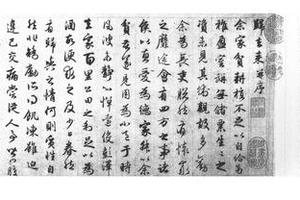 歸去來并序
余家貧耕植不足以自給幼
稚盈室瓶無儲粟生生之
資未見其術親故多勸
余為長吏脫然有懷求
之靡途會有四方之事諸
侯以惠愛為德家叔以余
貧苦遂見用為小邑于時
風波未靜心憚遠役彭澤
去家百里公田之利足以為
酒故便求之及少日眷然
有歸歟之情何則質性自
然非矯勵所得飢凍雖迫
違己交病嘗從人事皆口腹